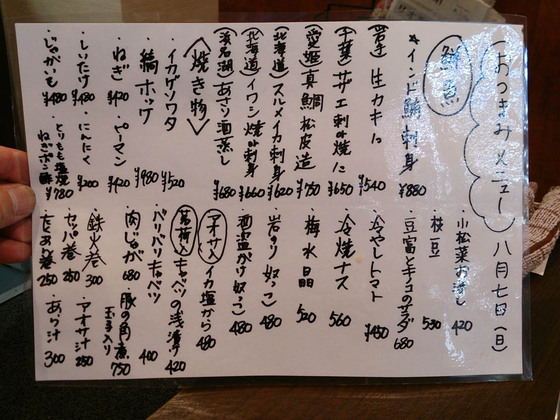 おつまみメニュー 八月七日(日)
鮮魚
*インド鮪刺身 ¥880
(岩手)生カキ1コ ¥540
(千葉)サザエ刺or焼1コ ¥650
(愛媛)真鯛松皮造 ¥750
(北海道)スルメイカ刺身 ¥620
(北海道)イワシ焼or刺身 ¥660
(浜名湖)あさり酒蒸し ¥680
<焼き物>
・イカゲソワタ ¥520
・縞ホッケ ¥980
・ねぎ ¥420
・ピーマン ¥420
・しいたけ ¥480
・にんにく ¥200
・じゃがいも ¥480
・とりもも塩焼 ねぎポン酢 ¥780
・小松菜お浸し 420
・枝豆 550
・豆富とキノコのサラダ 680
・冷やしトマト ¥450
・冷焼ナス 560
・梅水晶 520
・岩のり奴っこ 480
・酒盗がけ奴っこ 480
・アオサ入 イカ塩から 480
・茗荷入 キャベツの浅漬け 420
・パリパリキャベツ 400
・肉じゃが 680
・豚の角煮 玉子入り 750
・鉄火巻 300
・アオサ汁 250
・セッパ巻 250
・あら汁 300
・たくあん巻 250